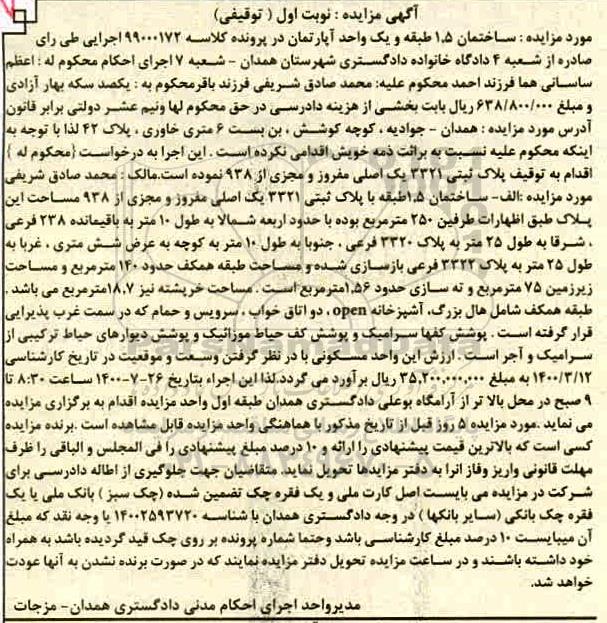 آگهی مزایده : نوبت اول ( توقیفی)
مورد مزایده : ساختمان ۱.۵ طبقه و یک واحد آپارتمان در پرونده کلاسه ۹۹۰۰۰۱۷۲ اجرایی طی رای
صادره از شعبه ۴ دادگاه خانواده دادگستری شهرستان همدان - شعبه ۷ اجرای احکام محکوم له : اعظم
ساسانی هما فرزند احمد محکوم علیه: محمد صادق شریفی فرزند باقرمحکوم به : یکصد سکه بهار آزادی
و مبلغ ۶۳۸/۸۰۰/۰۰۰ ریال بابت بخشی از هزینه دادرسی در حق محکوم لها ونیم عشر دولتی برابر قانون
آدرس مورد مزایده : همدان - جوادیه ، کوچه کوشش ، بن بست ۶ متری خاوری ، پلاک ۴۲ لذا با توجه به
اینکه محکوم علیه نسبت به برائت ذمه خویش اقدامی نکرده است . این اجرا به درخواست {محکوم له }
اقدام به توقیف پلاک ثبتی ۳۳۲۱ یک اصلی مفروز و مجزی از ۹۳۸ نموده است.مالک : محمد صادق شریفی
مورد مزایده :الف- ساختمان ۱.۵طبقه با پلاک ثبتی ۳۳۲۱ یک اصلی مفروز و مجزی از ۹۳۸ مساحت این
پلاک طبق اظهارات طرفین ۲۵۰ مترمربع بوده با حدود اربعه شمالا به طول ۱۰ متر به باقیمانده ۲۳۸ فرعی
، شرقا به طول ۲۵ متر به پلاک ۳۳۲۰ فرعی ، جنوبا به طول ۱۰ متر به کوچه به عرض شش متری ، غربا به
طول ۲۵ متر به پلاک ۳۳۲۲ فرعی بازسازی شده و مساحت طبقه همکف حدود ۱۴۰ مترمربع و مساحت
زیرزمین ۷۵ مترمربع و ته سازی حدود ۱.۵۶مترمربع است . مساحت خرپشته نیز ۱۸.۷مترمربع می باشد .
طبقه همکف شامل هال بزرگ، آشپزخانه open ، دو اتاق خواب ، سرویس و حمام که در سمت غرب پذیرایی
قرار گرفته است . پوشش کفها سرامیک و پوشش کف حیاط موزائیک و پوشش دیوارهای حیاط ترکیبی از
سرامیک و آجر است . ارزش این واحد مسکونی با در نظر گرفتن وسعت و موقعیت در تاریخ کارشناسی
۱۴۰۰/۳/۱۲ به مبلغ ۳۵,۲۰۰,۰۰۰,۰۰۰ ریال برآورد می گردد.لذا این اجراء بتاریخ ۲۶-۷-۱۴۰۰ ساعت ۸:۳۰ تا
۹ صبح در محل بالا تر از آرامگاه بوعلی دادگستری همدان طبقه اول واحد مزایده اقدام به برگزاری مزایده
می نماید .مورد مزایده ۵ روز قبل از تاریخ مذکور با هماهنگی واحد مزایده قابل مشاهده است .برنده مزایده
کسی است که بالاترین قیمت پیشنهادی را ارائه و ۱۰ درصد مبلغ پیشنهادی را فی المجلس و الباقی را ظرف
مهلت قانونی واریز وفاز انرا به دفتر مزایدها تحویل نماید. متقاضیان جهت جلوگیری از اطاله دادرسی برای
شرکت در مزایده می بایست اصل کارت ملی و یک فقره چک تضمین شده (چک سبز ) بانک ملی یا یک
فقره چک بانکی (سایر بانکها ) در وجه دادگستری همدان با شناسه ۱۴۰۰۲۵۹۳۷۲۰ یا وجه نقد که مبلغ
آن میبایست ۱۰ درصد مبلغ کارشناسی باشد وحتما شماره پرونده بر روی چک قید گردیده باشد به همراه
خود داشته باشند و در ساعت مزایده تحویل دفتر مزایده نمایند که در صورت برنده نشدن به آنها عودت
خواهد شد.
مدیرواحد اجرای احکام مدنی دادگستری همدان- مزجات